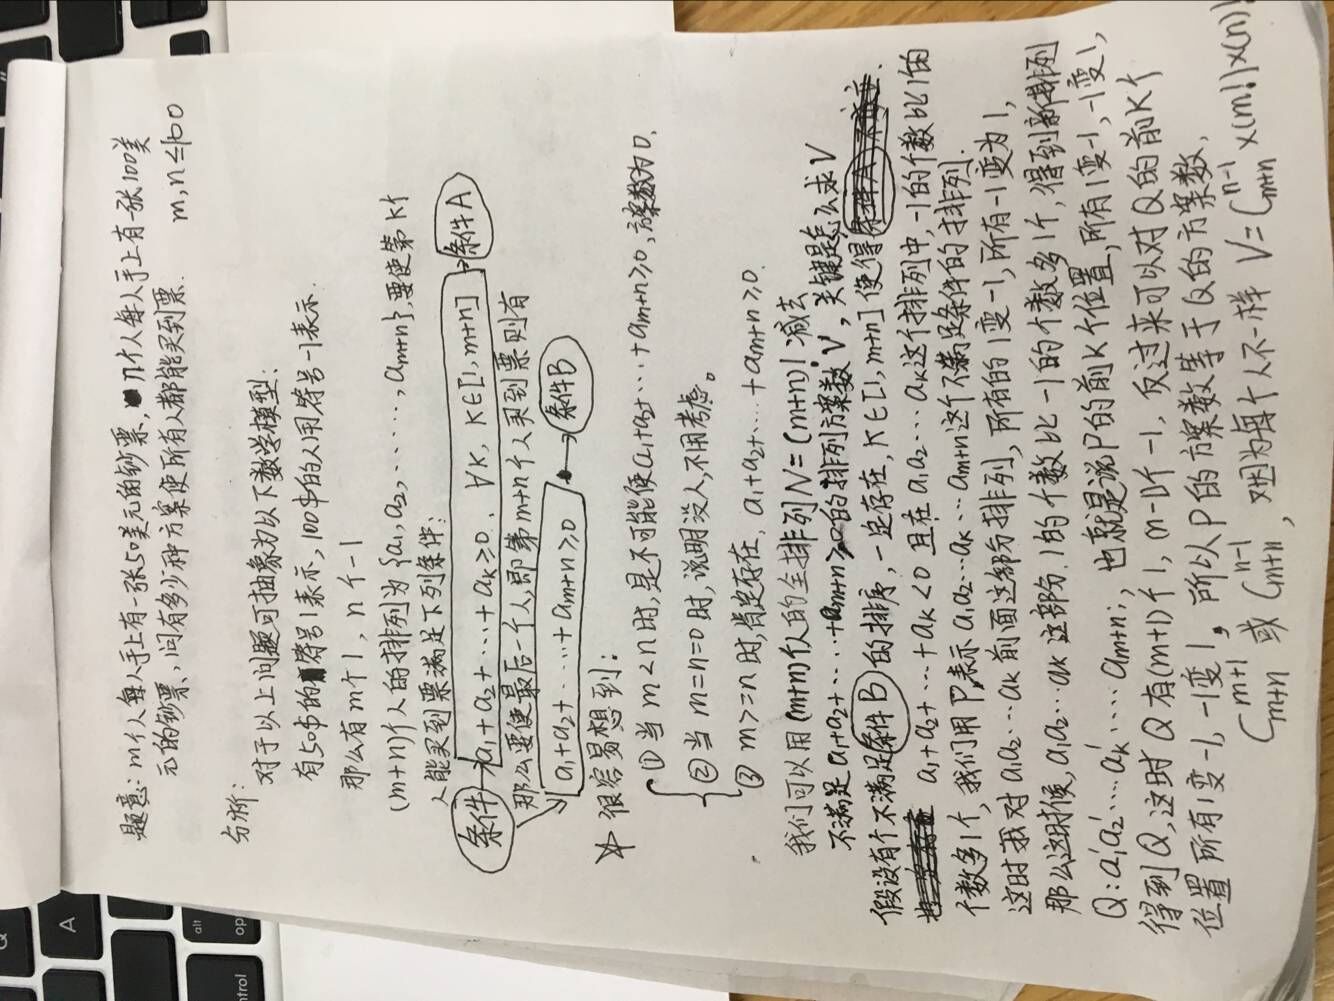 题意：m个人每人手上有一张50美元的钞票，n个人每人手上有一张100美
元的钞票、问有多少种方案使所有人都能买到票. m,n≤100
分析：
对于以上问题可抽象为以下数学模型：
有50市的符号1表示，100市的人用符号-1表示.
那么有m个1，n个-1
(m+n)个人的排列为{a₁,a₂,……,aₘ₊ₙ},要使第k个
人能买到票满足下列条件：
条件 a₁+a₂+…+aₖ≥0. ∀k, k∈[1,m+n] →条件A
那么要使最后一个人,即第m+n个人买到票则有
a₁+a₂+…+aₘ₊ₙ≥0 → 条件B
很容易想到：
① 当m<n时,是不可能使a₁+a₂+…+aₘ₊ₙ≥0,方案数为0.
② 当m=n=0时,说明没人,不用考虑。
③ m>=n时,肯定存在, a₁+a₂+…+aₘ₊ₙ≥0.
我们可以用(m+n)个人的全排列N=(m+n)! 减去
不满足a₁+a₂+…+aₘ₊ₙ≥0的排列方案数V,关键是怎么求V
假设有个不满足条件B的排序,一定存在,k∈[1,m+n]使得
a₁+a₂+…+aₖ<0 且在a₁a₂…aₖ这个排列中,-1的个数比1的
个数多1个,我们用P表示a₁a₂…aₖ…aₘ₊ₙ这个不满足条件的排列.
这时我对a₁a₂…aₖ前面这部分排列,所有的1变-1,所有-1变为1,
那么这时候,a₁a₂…aₖ这部分.1的个数比-1的个数多1个,得到新排列
Q:a₁'a₂'…aₖ'…aₘ₊ₙ;，也就是说P的前k个位置,所有1变-1,-1变1,
得到Q,这时Q有(m+1)个1,(n-1)个-1,反过来可以对Q的前k个
位置所有1变-1,-1变1，所以P的方案数等于Q的方案数,
Cₘ₊ₙᵐ⁺¹ 或 Cₘ₊ₙⁿ⁻¹，又因为每个人不一样 V=Cₘ₊ₙⁿ⁻¹×(m!)×(n)!
Q
A
alt
op
control